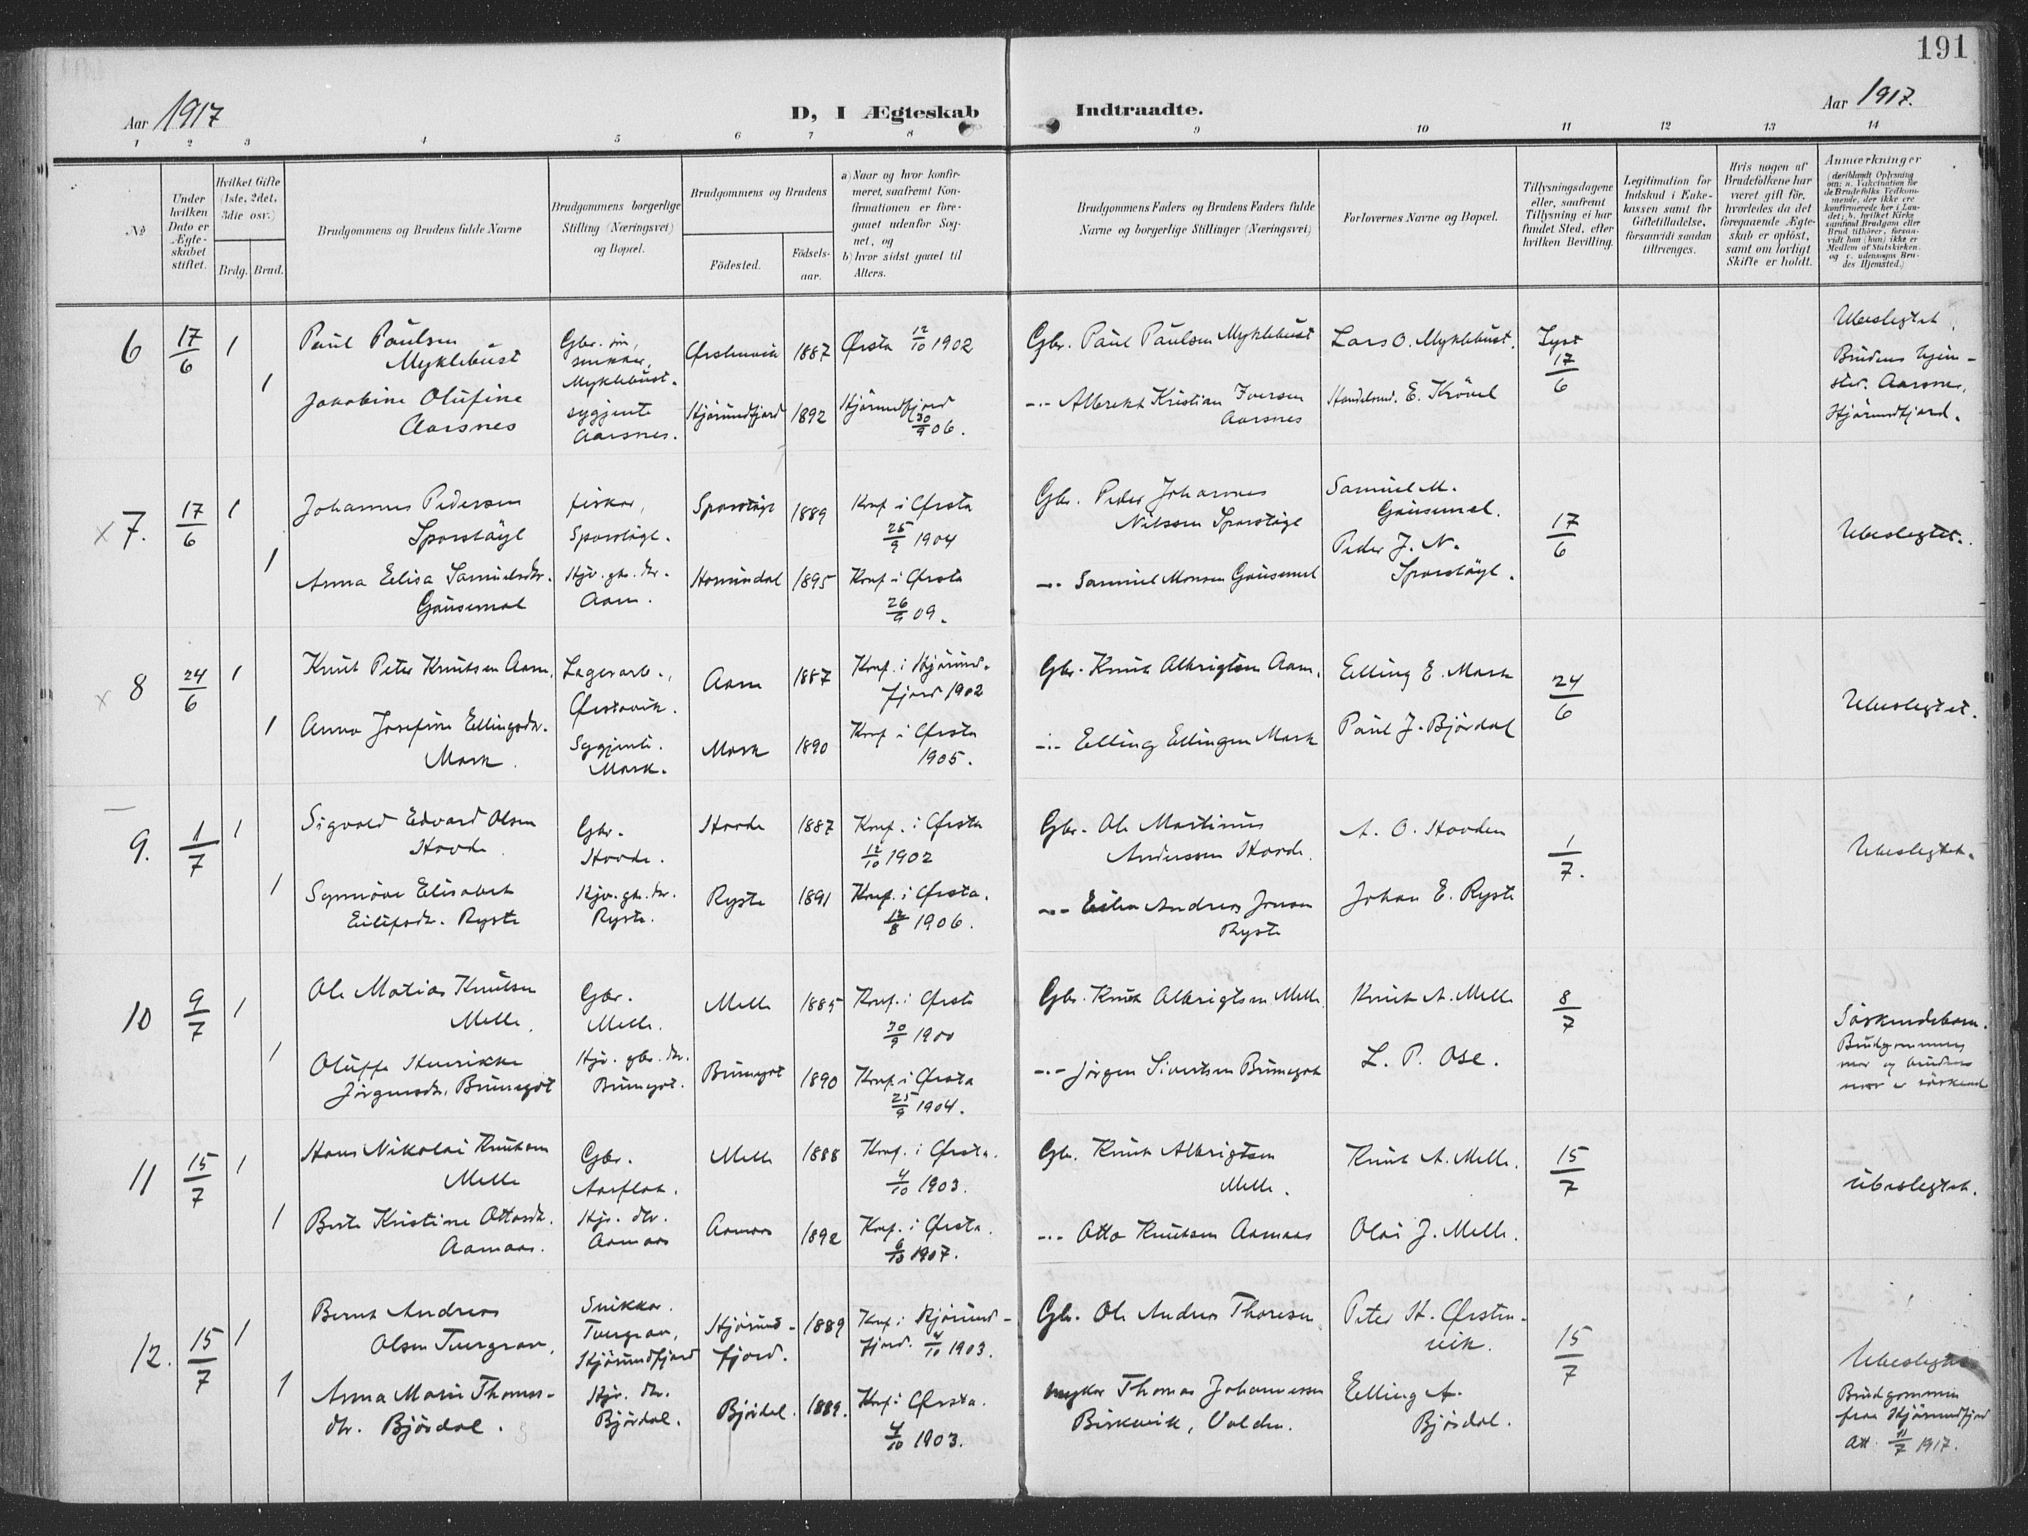 191
Aar 1917
D, I Ægteskab Indtraadte.
Aar 1917.
1 2 3 4 5 6 7 8 9 10 11 12 13 14
№
Under hvilken Dato er Ægteskabet stiftet.
Hvilket Gifte (1ste, 2det, 3die osv.)
Brdg. Brud.
Brudgommens og Brudens fulde Navne
Brudgommens borgerlige Stilling (Næringsvei) og Bopæl.
Brudgommens og Brudens
Födested.
Födselsaar.
a) Naar og hvor konfirmeret, saafremt Konfirmationen er foregaaet udenfor Sognet, og
b) hvor sidst gaaet til Alters.
Brudgommens Faders og Brudens Faders fulde Navne og borgerlige Stillinger (Næringsvei)
Forlovernes Navne og Bopæl.
Tillysningsdagene eller, saafremt Tillysning ei har fundet Sted, efter hvilken Bevilling.
Legitimation for Indskud i Enkekassen samt for Giftetilladelse, forsaavidt saadan tiltrænges.
Hvis nogen af Brudefolkene har været gift för, hvorledes da det foregaaende Ægteskab er oplöst, samt om lovligt Skifte er holdt.
Anmærkninger
(deriblandt Oplysning om: a. Vakcination for de Brudefolks Vedkommende, der ikke ere konfirmerede her i Landet; b. hvilket Kirkesamfund Brudgom eller Brud tilhörer, forsaavidt han (hun) ikke er Medlem af Statskirken, og c. udensogns Brudes Hjemsted.)
6
17/6
1
1
Paul Paulsen
Myklebust
Jakobine Olufine
Aarsnes
Gbr. søn,
snikkar,
Myklebust.
sygjente
Aarsnes.
Ørstenvik
Hjørundfjord
1887
1892
Ørsta 12/10 1902
Hjørundfjord
30/9 06.
Gbr. Paul Paulsen Myklebust
-"- Albrekt Kristian Iversen
Aarsnes
Lars O. Myklebust,
Handelsmd. E. Krövel
Lyst
17/6
Ubeslegtet.
Brudens hjem-
sted. Aarsnes,
Hjørundfjord.
x 7.
17/6
1
1
Johannes Pedersen
Sporstøyl
Anna Elisa Samuelsdtr.
Gausemel
fiskar,
Sporstøyl.
Hjv. gbr. dtr.
Aam.
Sporstøyl
Hornindal
1889
1895
Konf. i Ørsta
25/9 1904
Konf. i Ørsta
26/9 09.
Gbr. Peder Johannes
Nilssen Sporstøyl
-"- Samuel Monsen Gausemel
Samuel M.
Gausemel.
Peder J. N.
Sporstøyl.
17/6
Ubeslegtet.
x 8
24/6
1
1
Knut Peter Knutsen Aam,
Anna Josefine Ellingsdtr.
Mork.
Lagerarb.,
Ørstavik.
Sygjente.
Mork.
Aam
Mork
1887
1890
Konf. i Hjørund-
fjord 1902
Konf. i Ørsta
1905.
Gbr. Knut Albrigtsen Aam.
-"- Elling Ellingsen Mork
Elling E. Mork
Paul J. Bjørdal
24/6
Ubeslegtet.
9.
1/7
1
1
Sigvald Edvard Olsen
Hovde
Synnøve Elisabet
Eilifsdtr. Ryste
Gbr.
Hovde.
Hjv. gbr. dtr.
Ryste.
Hovde
Ryste
1887
1891
Konf. i Ørsta
12/10 1902
Konf. i Ørsta.
12/8 1906.
Gbr. Ole Martinus
Anderssen Hovde.
-"- Andreas Jonsen
Ryste
A. O. Hovden
Johan E. Ryste
1/7.
Ubeslegtet.
10
9/7
1
1
Ole Matias Knutsen
Melle.
Oluffe Henrikke
Jörgensdtr. Brunegot
Gbr.
Melle.
Hjv. gbr. dtr.
Brunegot.
Melle
Brunegot
1885
1890
Konf. i Ørsta
30/9 1900
Konf. i Ørsta
25/9 1904.
Gbr. Knut Albrigtsen Melle
-"- Jörgen Sivertsen Brunegot
Knut A. Melle
L. P. Ose.
8/7
Söskendebarn.
Brudgommens
mor og brudens
mor er söskend
11
15/7
1
1
Hans Nikolai Knutsen
Melle
Berte Kristine Ottosdtr.
Aamaas.
Gbr.
Aarflot.
Hjv. dtr.
Aamaas
Melle
Aamaas
1888
1892
Konf. i Ørsta.
4/10 1903.
Konf. i Ørsta.
6/10 1907.
Gbr. Knut Albrigtsen
Melle.
-"- Otto Knutsen Aamaas
Knut A. Melle.
Olai J. Melle.
15/7
Ubeslegtet.
12.
15/7
1
1
Bernt Andreas
Olsen Tvergrov,
Anna Marie Thomas-
dtr. Bjørdal.
Snikkar.
Tvergrov,
Hjørundfjord
Hjv. dtr.
Bjørdal.
Hjørund-
fjord.
Bjørdal.
1889
1889.
Konf. i Hjørund-
fjord. 4/10 1903.
Konf. i Ørsta.
4/10 1903.
Gbr. Ole Andreas Thoresen
Thomas Johannessen
Birkevik, Volden.
Peter H. Ørsten-
vik.
Elling A.
Bjørdal.
15/7
Ubeslegtet
Brudgommen
fraa Hjørundfjord
Att. 11/7 1917.